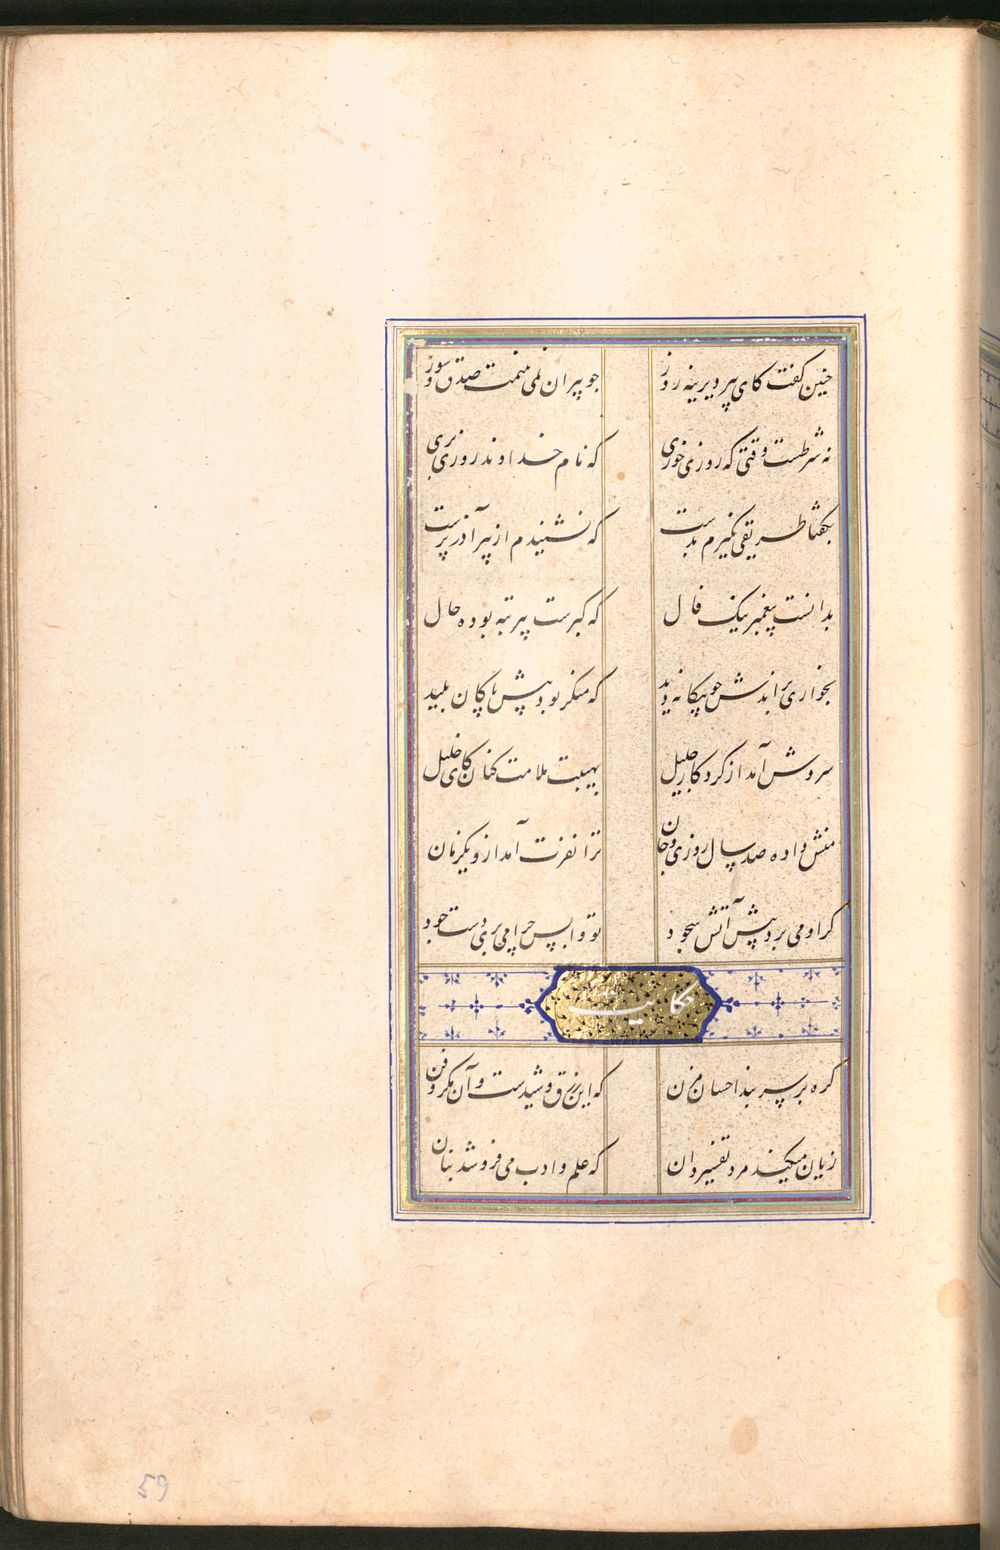 چنین گفت کای پیر دیرینه روز چو پیران نمی‌بینمت صدق و سوز
نه شرطست وقتی که روزی خوری که نام خداوند روزی بری
بگفتا طریقی نگیرم بدست که نشنیدم از پیر آذر پرست
بدانست پیغمبر نیک فال که گبرست پیر تبه بوده حال
بخواری براندش چو بیگانه دید که منکر بود پیش پاکان پلید
سروش آمد از کردگار جلیل بهیبت ملامت کنان کای خلیل
منش داده صد سال روزی و جان ترا نفرت آمد ازو یکزمان
گر او می برد پیش آتش سجود تو وا پس چرا می بری دست جود
حکایت
گره بر سر بند احسان مزن که این زرق و شیدست و آن مکر و فن
زیان میکند مرد تفسیردان که علم و ادب می فروشد بنان
59